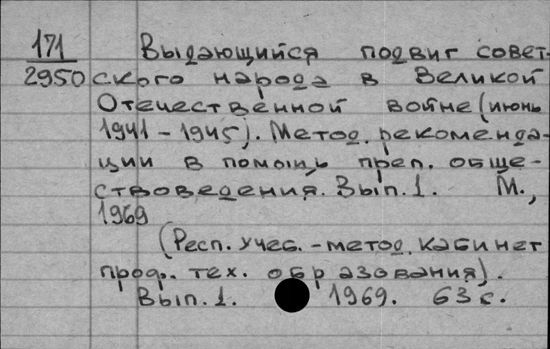 171 Выдающийся подвиг совет-
2950 ского народа в Великой
Отечественной войне (июнь
1941-1945). Метод. рекоменда-
ции в помощь преп. обще-
ствоведения. Вып. 1. М.,
1969
(Респ. учеб.-метод. кабинет
проф. тех. образования).
Вып. 1. 1969. 63 с.